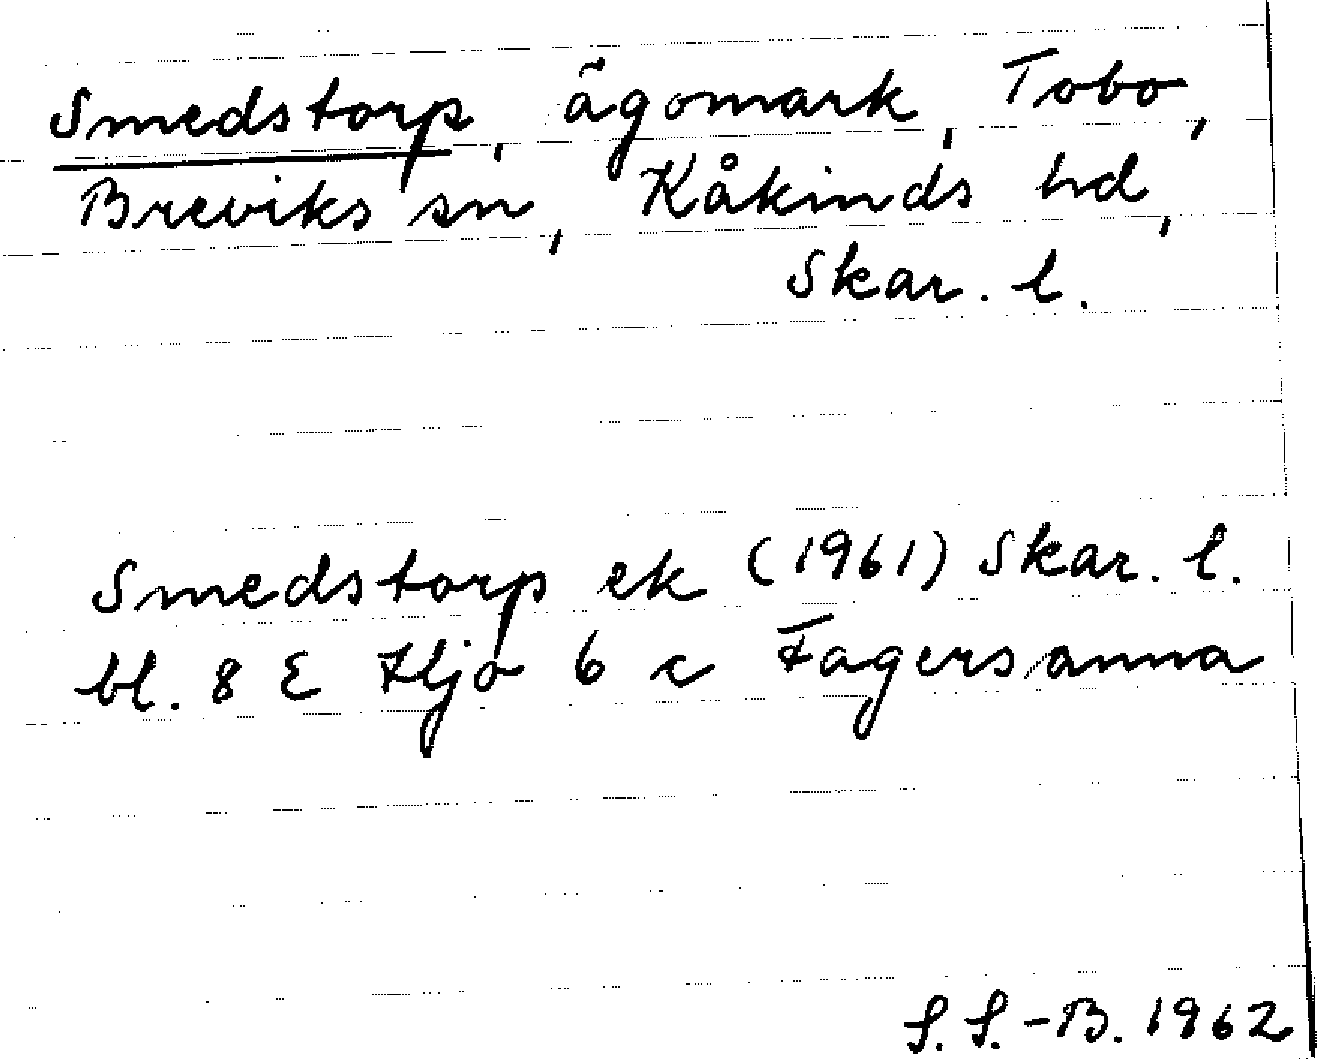 Smedstorp, ägomark, Tobo,
Breviks sn, Kåkinds hd,
Skar. l.
Smedstorp ek (1961) Skar. l.
bl. 8 E Hjo 6 c Fagersanna
S. S.-B. 1962